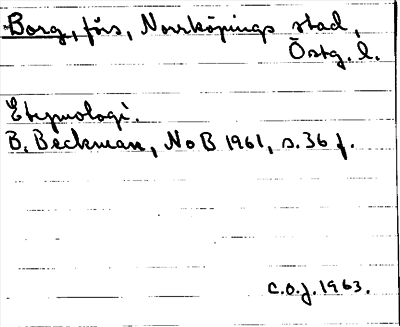 Borg, förs, Norrköpings stad,
Östg. l.
Etymologi.
B. Beckman, NoB 1961, s. 36 f.
C.O.J. 1963.